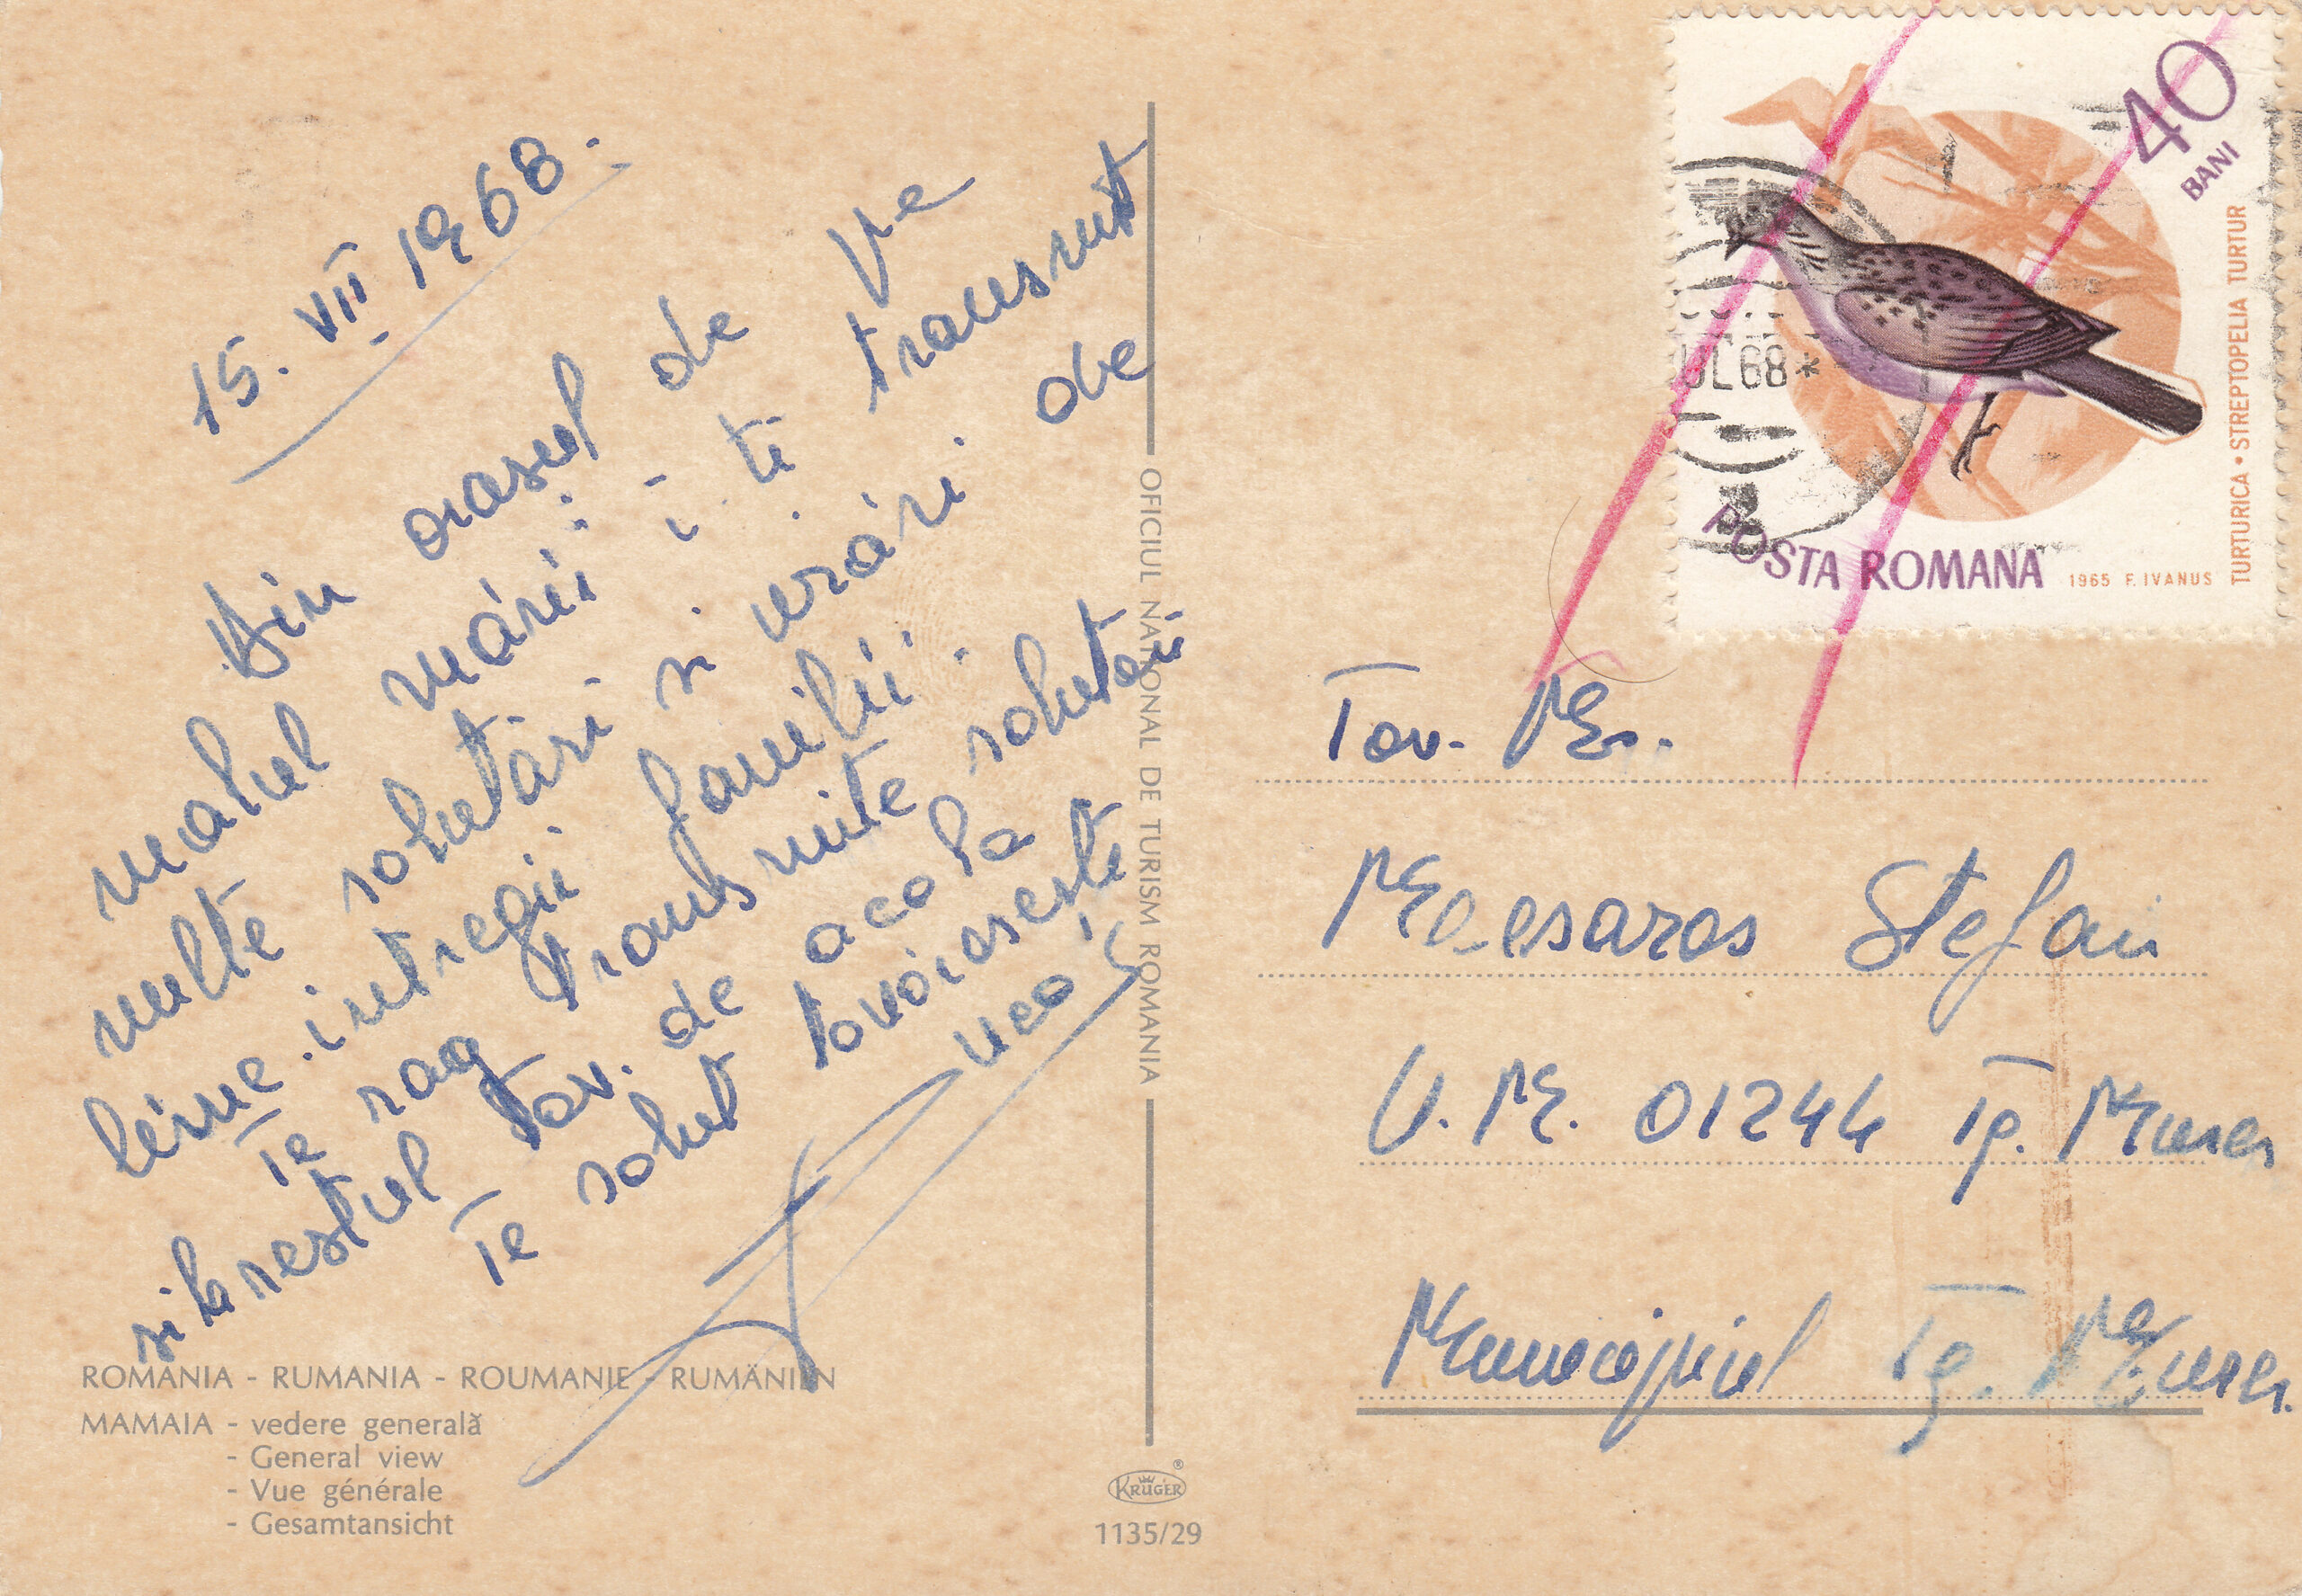 15. VII 1968.
Din orasul de pe
malul mării iti transmit
multe salutări si urări de
bine intregii familii.
Te rog transmite salutări
si la restul tov. de acolo
Te salut tovărăseste
ROMANIA - RUMANIA - ROUMANIE - RUMÄNIEN
MAMAIA - vedere generală
- General view
- Vue générale
- Gesamtansicht
OFICIUL NAȚIONAL DE TURISM ROMANIA
KRÜGER®
1135/29
40
BANI
JUL68*
POSTA ROMANA
1965 F. IVANUS
TURTURICA • STREPTOPELIA TURTUR
Tov. M.
Meesaros Stefan
U.M. 01244 Tg. Mures
Municipiul Tg. Mures.